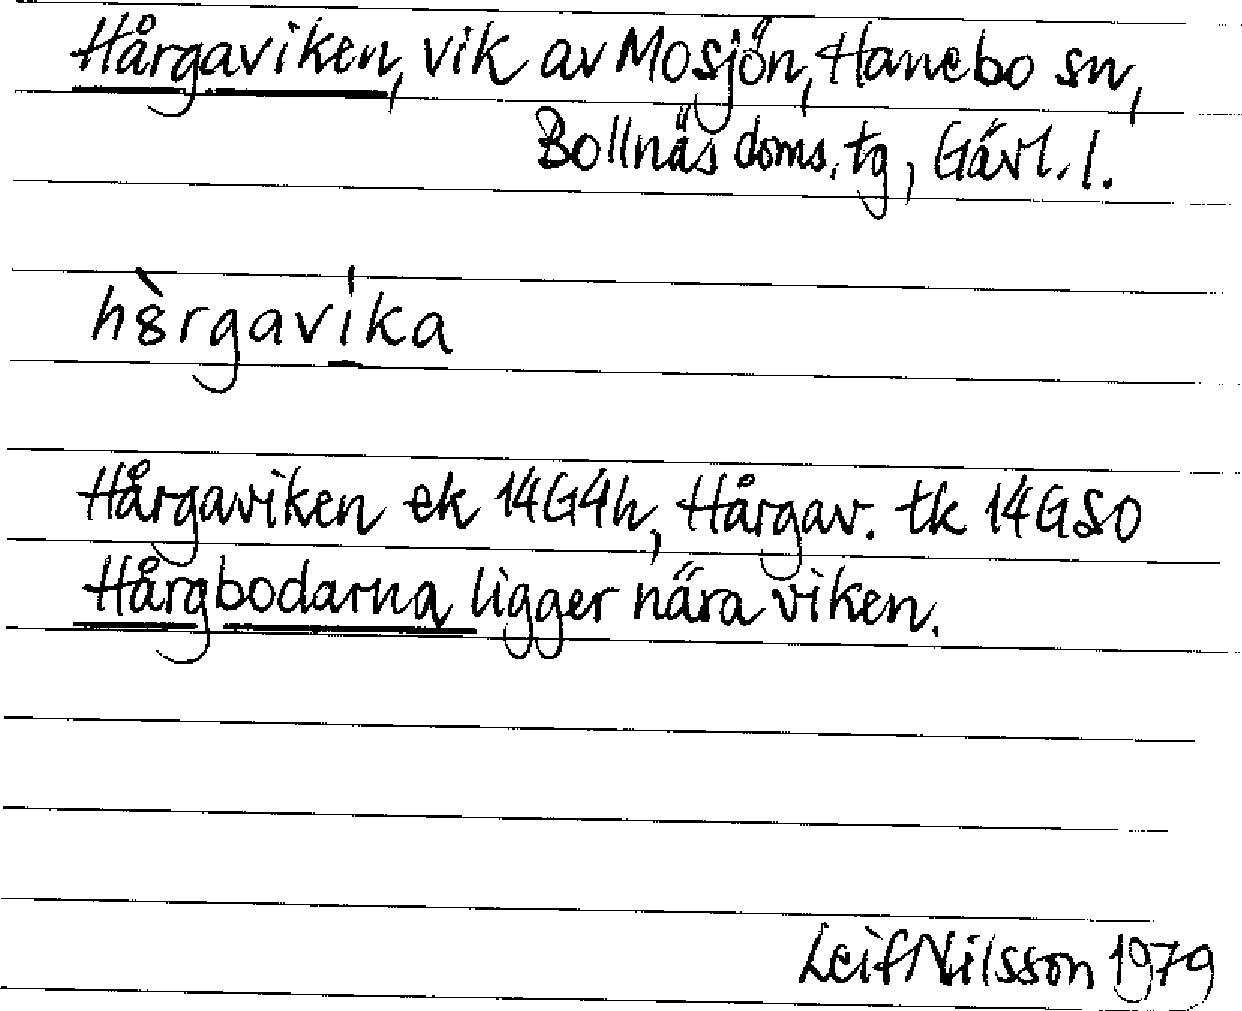 Hårgaviken, vik av Mosjön, Hanebo sn,
Bollnäs doms. tg, Gävl. l.
hȣ̀rgavi̲ka
Hårgaviken ek 14G4h, Hårgav. tk 14GSO
Hårgbodarna ligger nära viken.
Leif Nilsson 1979